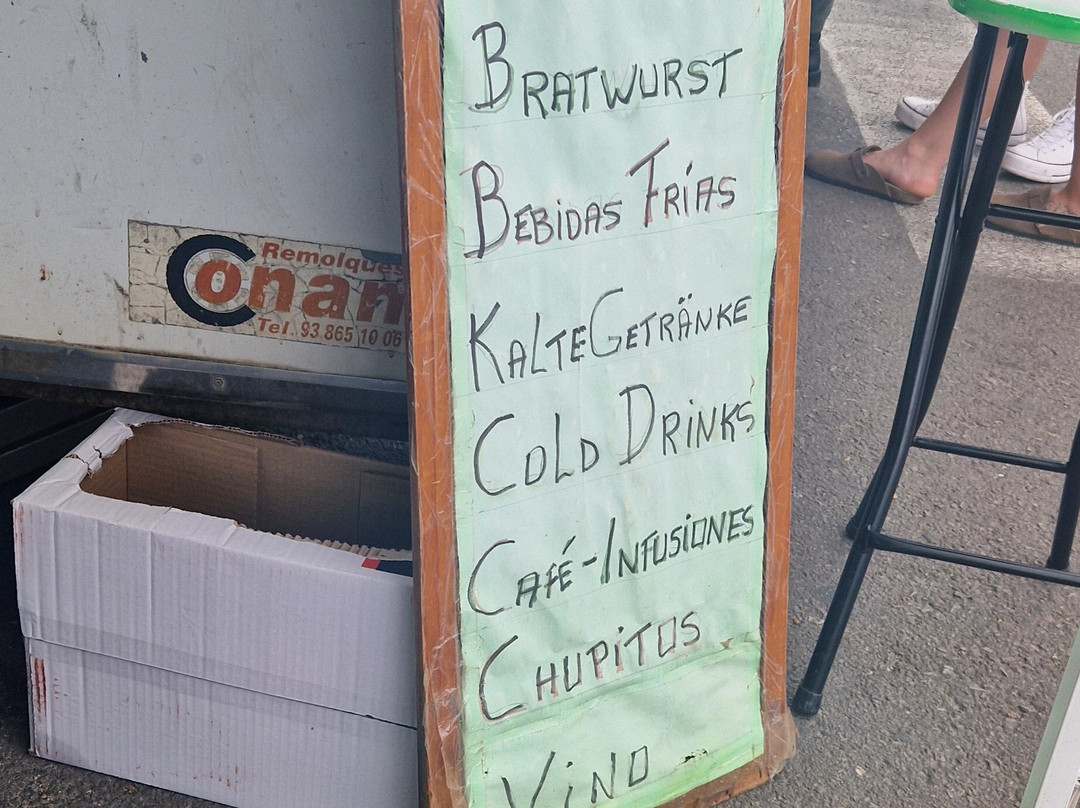 Bratwurst
Bebidas Frias
Kalte Getränke
Cold Drinks
Café-Infusiones
Chupitos
Vino
Remolques
Conam
Tel. 93 865 10 06